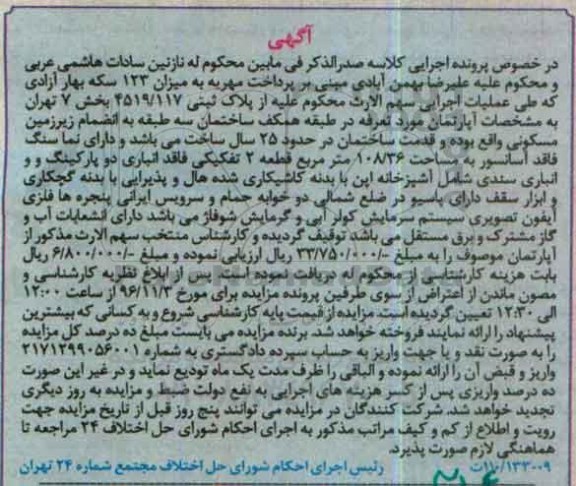 آگهی
در خصوص پرونده اجرایی کلاسه صدرالذکر فی مابین محکوم له نازنین سادات هاشمی عربی
و محکوم علیه علیرضا بهمن آبادی مبنی بر پرداخت مهریه به میزان ۱۲۳ سکه بهار آزادی
که طی عملیات اجرایی سهم الارث محکوم علیه از پلاک ثبتی ۴۵۱۹/۱۱۷ بخش ۷ تهران
به مشخصات آپارتمان مورد تعرفه در طبقه همکف ساختمان سه طبقه به انضمام زیرزمین
مسکونی واقع بوده و قدمت ساختمان در حدود ۲۵ سال ساخت می باشد و دارای نما سنگ
فاقد آسانسور به مساحت ۱۰۸/۳۶ متر مربع قطعه ۲ تفکیکی فاقد انباری دو پارکینگ و و
انباری سندی شامل آشپزخانه اپن با بدنه کاشیکاری شده هال و پذیرایی با بدنه گچکاری
و ابزار سقف دارای پاسیو در ضلع شمالی دو خوابه حمام و سرویس ایرانی پنجره ها فلزی
آیفون تصویری سیستم سرمایش کولر آبی و گرمایش شوفاژ می باشد دارای انشعابات آب و
گاز مشترک و برق مستقل می باشد توقیف گردیده و کارشناس منتخب سهم الارث مذکور از
آپارتمان موصوف را به مبلغ -/۳۳/۷۵۰/۰۰۰ ریال ارزیابی نموده و مبلغ -/۶/۸۰۰/۰۰۰ ریال
بابت هزینه کارشناسی از محکوم له دریافت نموده است. پس از ابلاغ نظریه کارشناسی و
مصون ماندن از اعتراض از سوی طرفین پرونده مزایده برای مورخ ۹۶/۱۱/۳ از ساعت ۱۲:۰۰
الی ۱۲:۳۰ تعیین گردیده است. مزایده از قیمت پایه کارشناسی شروع و به کسانی که بیشترین
پیشنهاد را ارائه نمایند فروخته خواهد شد. برنده مزایده می بایست مبلغ ده درصد کل مزایده
را به صورت نقد و یا جهت واریز به حساب سپرده دادگستری به شماره ۲۱۷۱۲۹۹۰۵۶۰۰۱
واریز و قبض آن را ارائه نموده و الباقی را ظرف مدت یک ماه تودیع نماید و در غیر این صورت
ده درصد واریزی پس از کسر هزینه های اجرایی به نفع دولت ضبط و مزایده به روز دیگری
تجدید خواهد شد. شرکت کنندگان در مزایده می توانند پنج روز قبل از تاریخ مزایده جهت
رویت و اطلاع از کم و کیف مراتب مذکور به اجرای احکام شورای حل اختلاف ۲۴ مراجعه تا
هماهنگی لازم صورت پذیرد.
۱۱۰/۱۳۳۰۰۹/ت رئیس اجرای احکام شورای حل اختلاف مجتمع شماره ۲۴ تهران